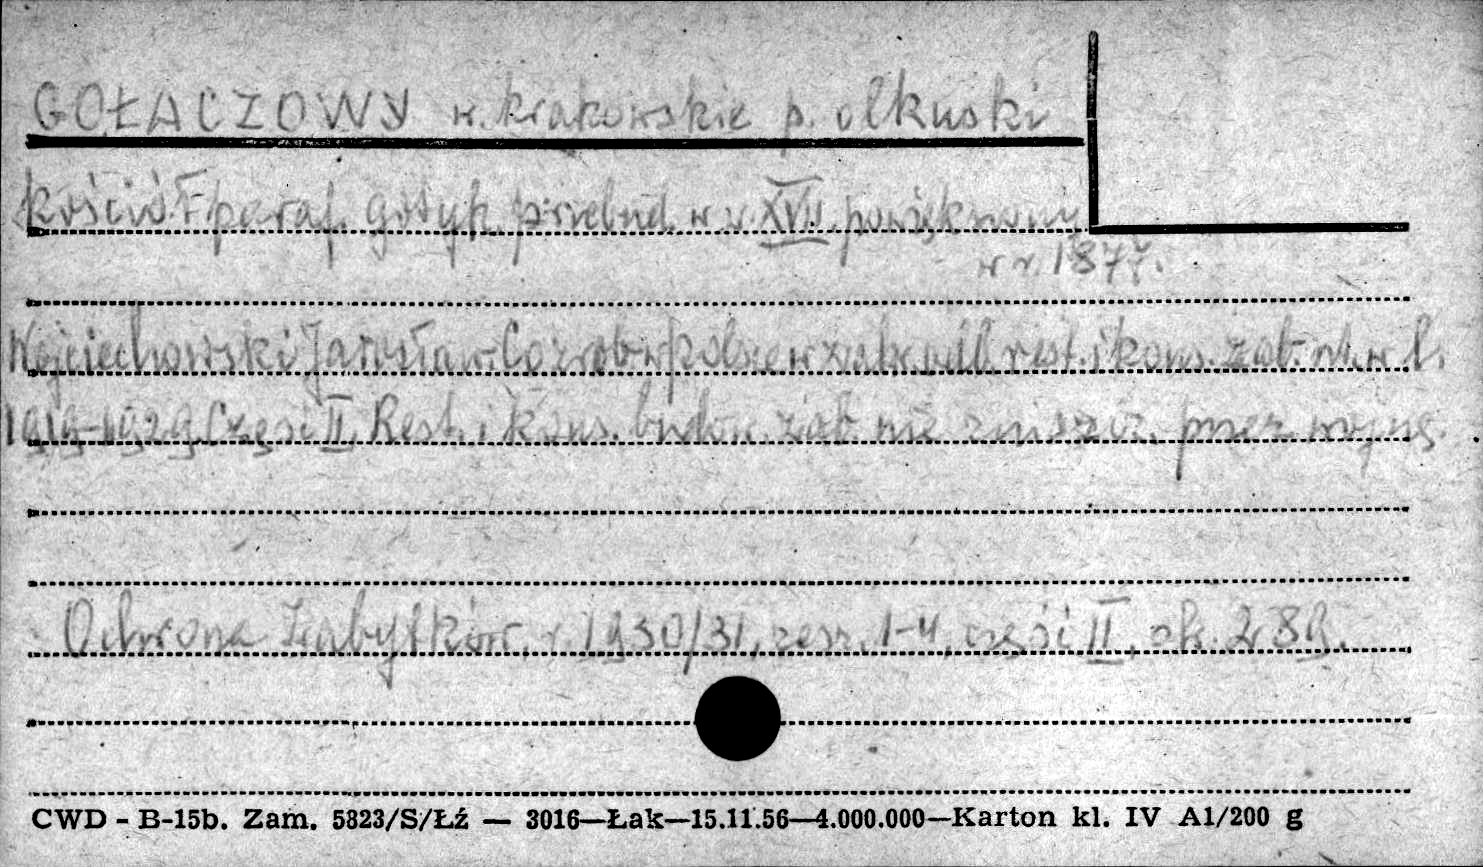 GOŁACZOWY w. krakowskie p. olkuski
kościół paraf. gotyk. przebud. w w. XVII. powiększony
w r. 1877.
Wojciechowski Jarosław. Co zrob. w Polsce w zakr. odb. rest. i kons. zab. w l.
1919-1929. Część II. Rest. i kons. budow. zab. nie zniszcz. przez wojnę.
Ochrona Zabytków, r 1930/31, zesz. 1-4, część II, ok. 289.
CWD - B-15b. Zam. 5823/S/Łź — 3016—Łak—15.11.56—4.000.000—Karton kl. IV A1/200 g